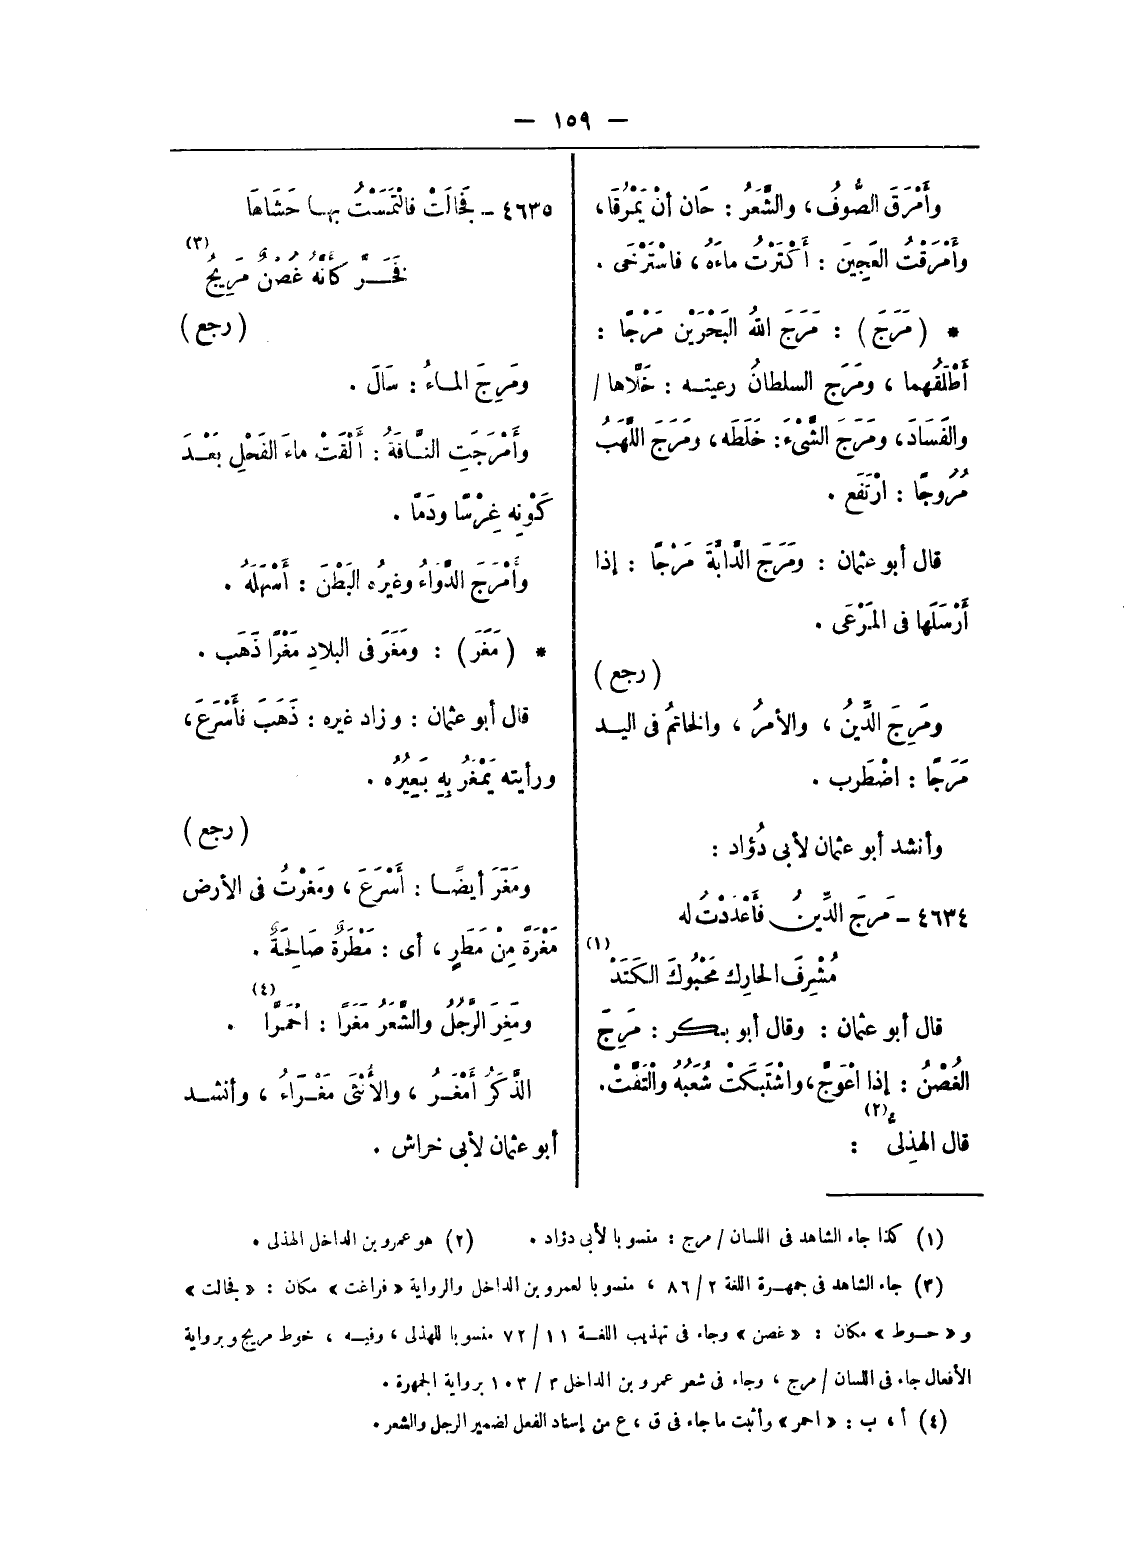 — ١٥٩ —
وأَمْرَقَ الصُّوفُ، والشَّعَرُ : حَان أنْ يَمْرُقَا،
وأَمْرَقْتُ العَجِينَ : أَكْثَرْتُ مَاءَهُ، فاسْتَرْخَى .
* (مَرَجَ) : مَرَجَ اللهُ البَحْرَيْن مَرْجًا :
أَطْلَقَهُما ، ومَرَج السلطانُ رعيتـه : خَلَّاها /
والفَسَادَ، ومَرَجَ الشَّىْءَ: خَلَطَه، ومَرَجَ اللَّهَبُ
مُرُوجًا : ارْتَفَع .
قال أبو عثمان : ومَرَجَ الدَّابَّةَ مَرْجًا : إذا
أَرْسَلَها فى المَرْعَى .
(رجع)
ومَرِجَ الدِّينُ ، والأمرُ ، والخاتمُ فى اليـد
مَرَجًا : اضْطَرب .
وأنشد أبو عثمان لأبى دُؤاد :
٤٦٣٤ – مَرِجَ الدِّينُ فأَعْدَدْتُ له
مُشْرِفَ الحارِك مَحْبُوكَ الكَتَدْ (١)
قال أبو عثمان : وقال أبو بـكر : مَرِجَ
الغُصْنُ : إذا اعْوَجَّ، واشْتَبَكَتْ شُعَبُهُ والْتَفَّتْ.
قال الهذِلى (٢) :
٤٦٣٥ – فَجَالَتْ فالْتَمَسْتُ بهـا حَشَاهَا
فَخَـرَّ كأنَّهُ غُصْنٌ مَرِيجُ (٣)
(رجع)
ومَرِجَ المـاءُ : سَالَ .
وأَمْرَجَتِ النـَّاقَةُ : أَلْقَتْ ماءَ الفَحْلِ بَعْـدَ
كَوْنِهِ غِرْسًا ودَمًا .
وأَمْرَجَ الدَّوَاءُ وغيرُه البَطْنَ : أَسْهَلَهُ .
* (مَغَرَ) : ومَغَرَ فى البلادِ مَغْرًا ذَهَب .
قال أبو عثمان : وزاد غيره : ذَهَبَ فأَسْرَعَ،
ورأيته يَمْغَرُ بِهِ بَعِيرُه .
(رجع)
ومَغَرَ أيضًـا : أَسْرَعَ ، ومَغَرَتْ فى الأرض
مَغْرَةٌ مِنْ مَطَرٍ ، أى : مَطْرَةٌ صَالِحَةٌ .
ومَغِرَ الرَّجُلُ والشَّعَرُ مَغَرًا : احْمَرَّا (٤) .
الذَّكَرُ أَمْغَـرُ ، والأُنْثَى مَغْـرَاءُ ، وأنشـد
أبو عثمان لأبى خراش .
(١) كذا جاء الشاهد فى اللسان / مرج : منسوبا لأبى دؤاد . (٢) هو عمرو بن الداخل الهذلى .
(٣) جاء الشاهد فى جمهـرة اللغة ٢ / ٨٦ ، منسوبا لعمرو بن الداخل والرواية « فراغت » مكان : « فجالت »
و « خـوط » مكان : « غصن » وجاء فى تهذيب اللغـة ١١ / ٧٢ منسوبا للهذلى ، وفيـه ، خوط مريج وبرواية
الأفعال جاء فى اللسان / مرج ، وجاء فى شعر عمرو بن الداخل ٣ / ١٠٣ برواية الجمهرة .
(٤) أ ، ب : « احمر » وأثبت ما جاء فى ق ، ع من إسناد الفعل لضمير الرجل والشعر .